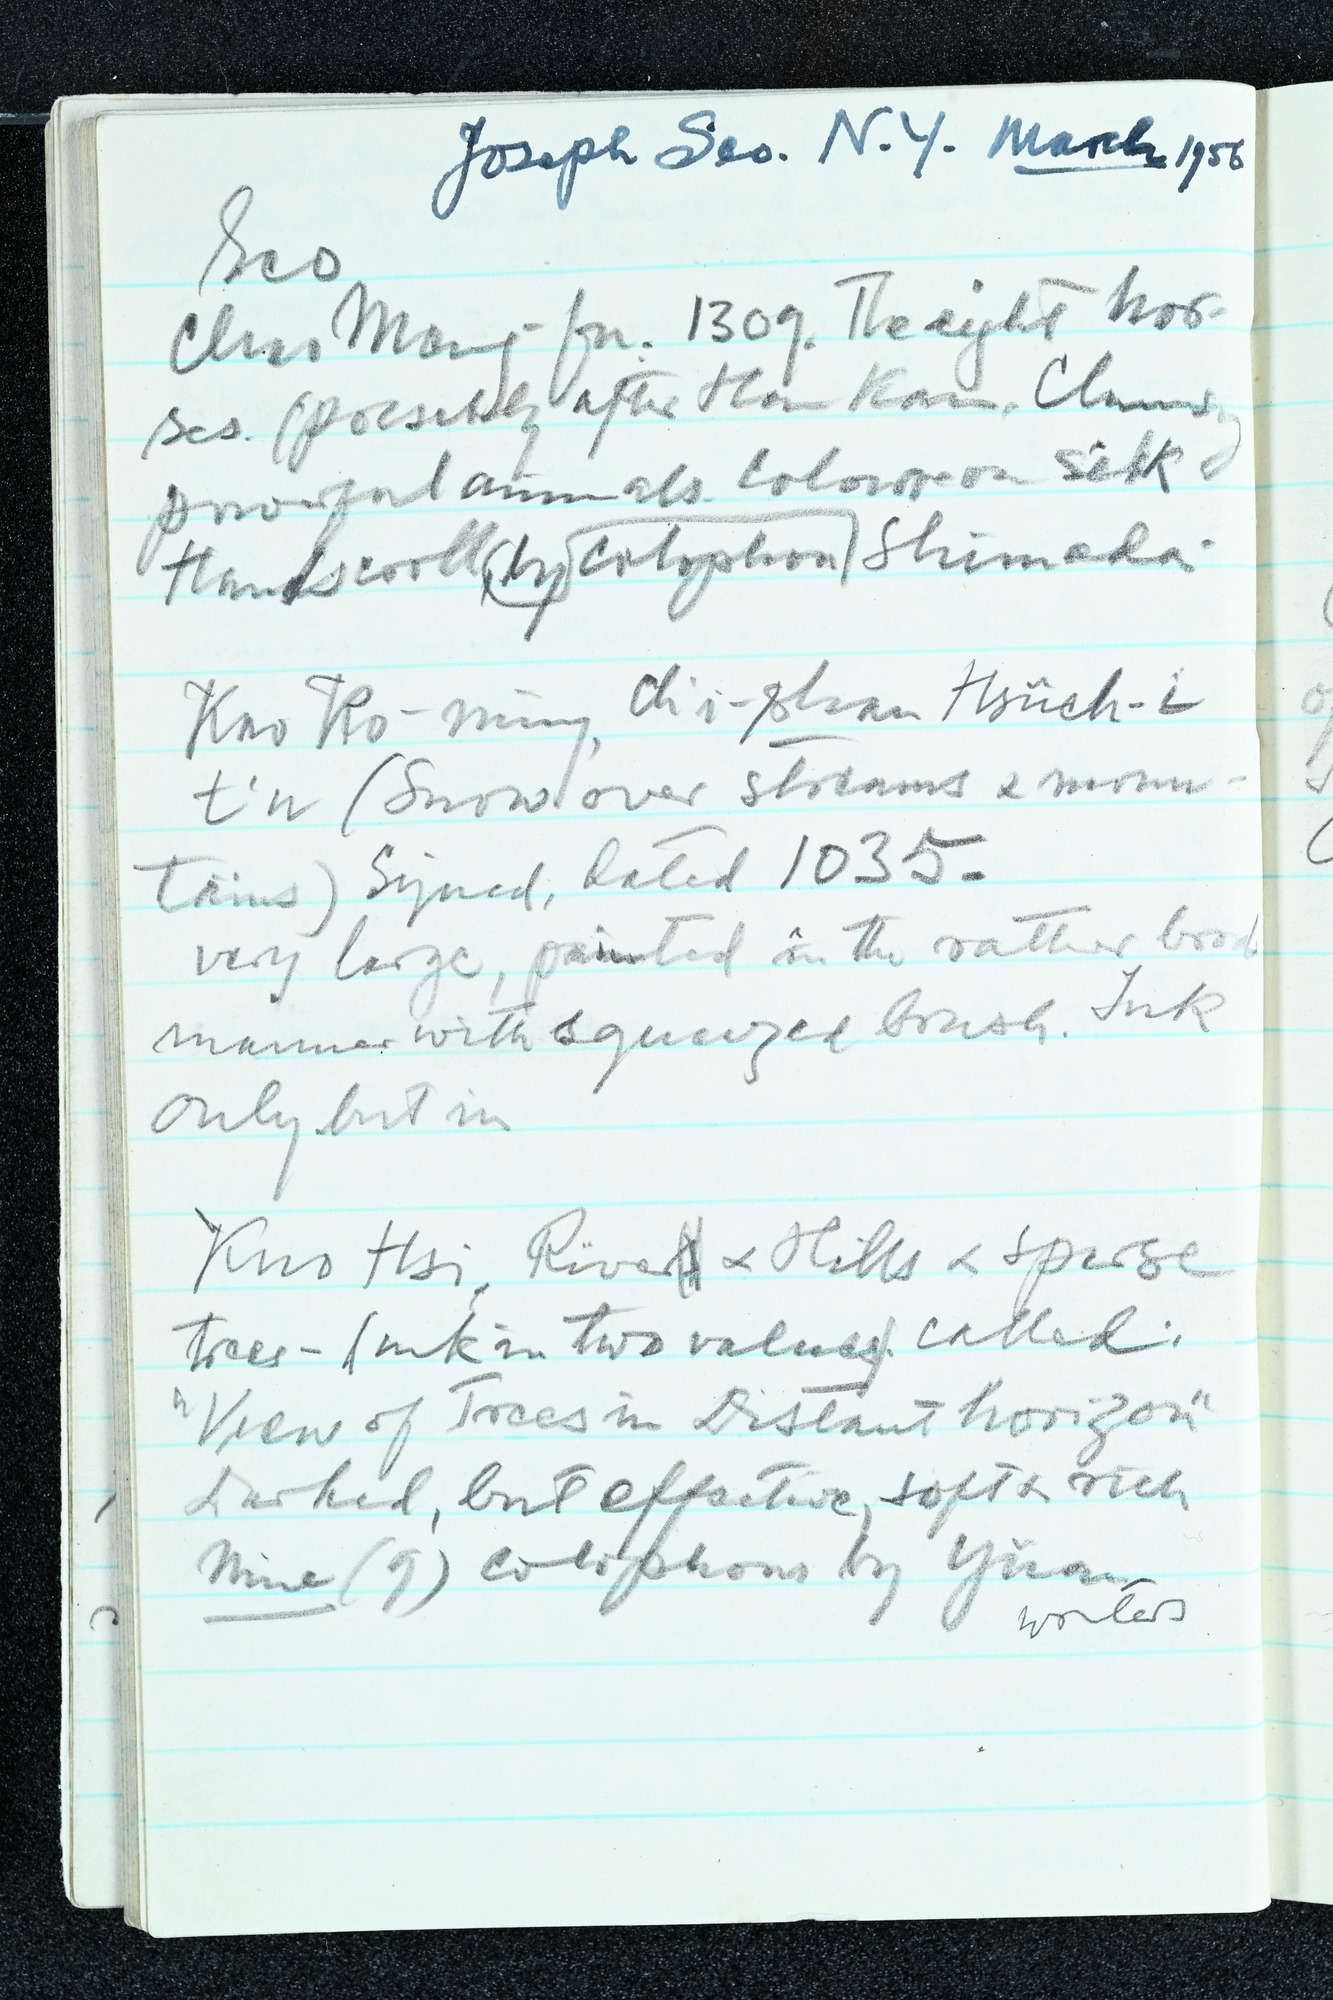 Joseph Seo. N.Y. March 1956
Seo
Chao Mang-fu. 1309. The eight hor-
ses. (possibly after Han Kan. Clumsy
powerful animals. Colour on silk
Handscroll, (by colophon) Shimada.
Kao Ko-ming, Hsüeh-i
t'u (Snow over streams & moun-
tains) Signed, dated 1035.
very large, painted in the rather broad
manner with squeezed brush. Ink
only but in
Kuo Hsi, River & Hills & sparse
trees - (ink in two values). called:
"View of Trees in Distant horizon"
Darked, but effective, soft & rich
Nine (9) colophons by Yüan
writers